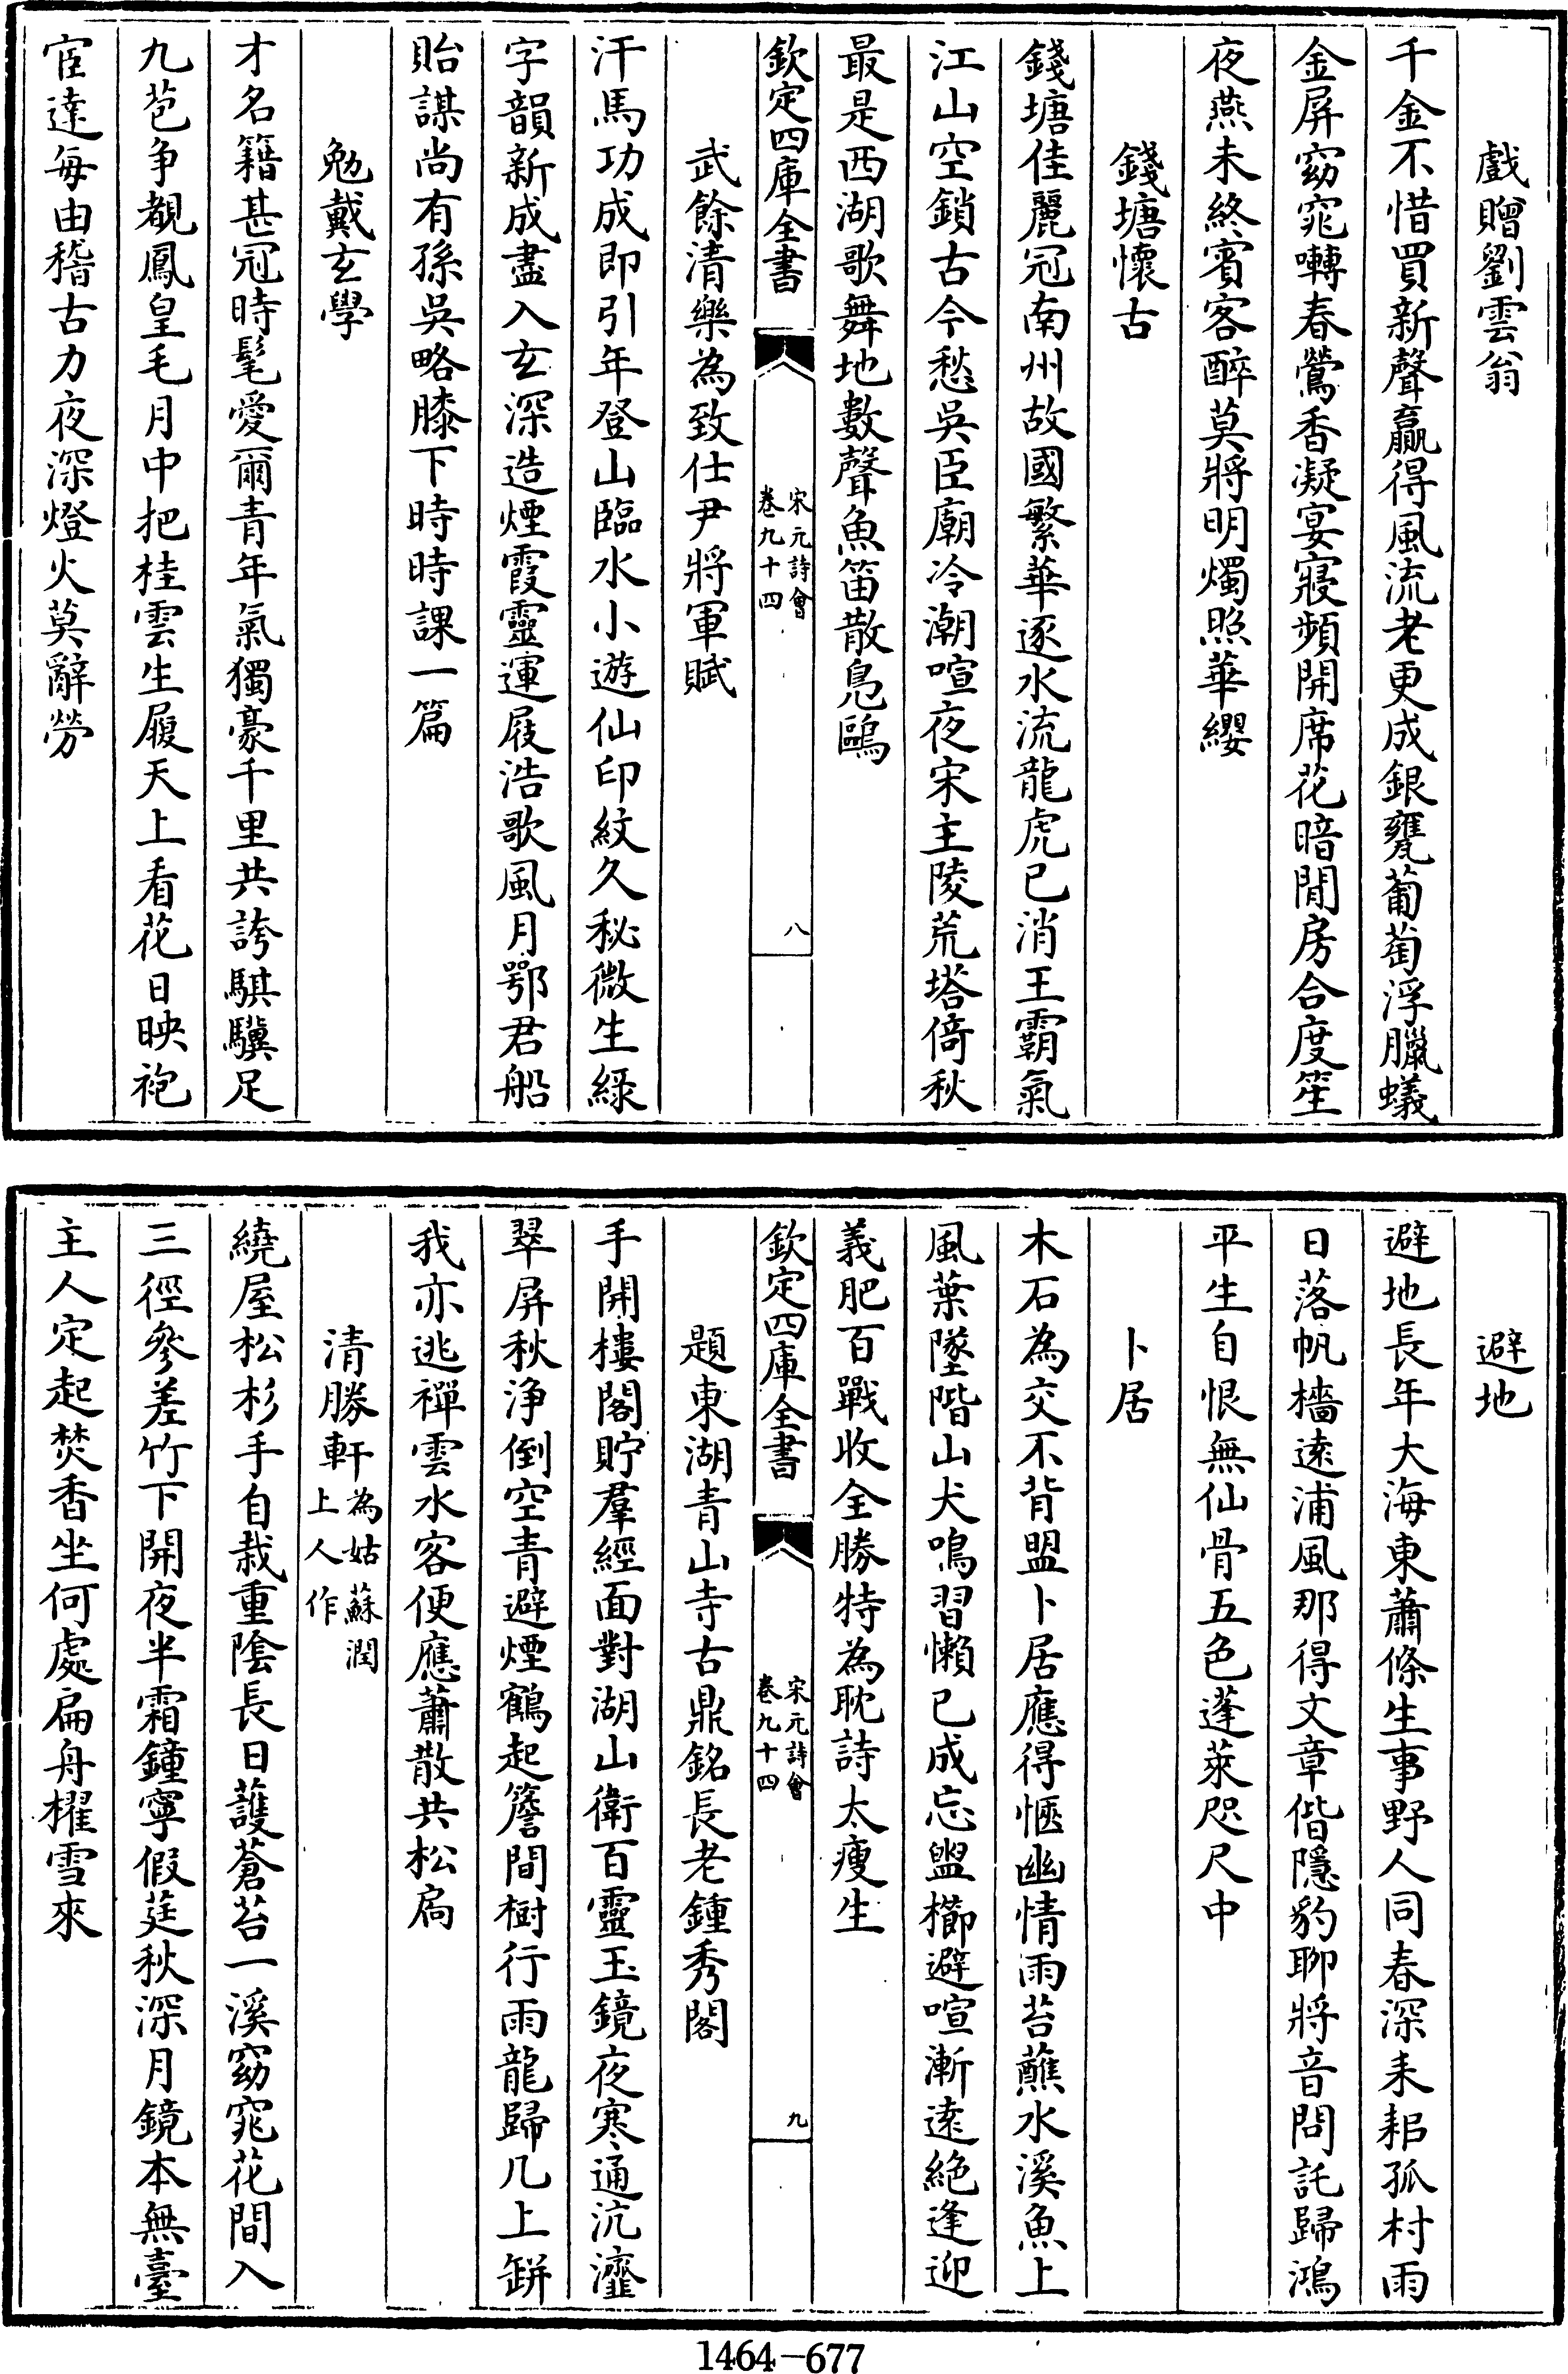 戲贈劉雲翁
千金不惜買新聲贏得風流老更成銀甕葡萄浮臘蟻
金屏窈窕囀春鶯香凝宴寢頻開席花暗閒房合度笙
夜燕未終賓客醉莫將明燭照華纓
錢塘懷古
錢塘佳麗冠南州故國繁華逐水流龍虎已消王霸氣
江山空鎖古今愁吳臣廟冷潮喧夜宋主陵荒塔倚秋
最是西湖歌舞地數聲魚笛散鳧鷗
欽定四庫全書
宋元詩會
卷九十四
八
武餘清樂為致仕尹將軍賦
汗馬功成即引年登山臨水小遊仙印紋久秘微生綠
字韻新成盡入玄深造煙霞靈運屐浩歌風月鄂君船
貽謀尚有孫吳略膝下時時課一篇
勉戴玄學
才名籍甚冠時髦愛爾青年氣獨豪千里共誇騏驥足
九苞争覩鳳皇毛月中把桂雲生履天上看花日映袍
宦達每由稽古力夜深燈火莫辭勞
避地
避地長年大海東蕭條生事野人同春深耒耜孤村雨
日落帆檣遠浦風那得文章偕隱豹聊將音問託歸鴻
平生自恨無仙骨五色蓬萊咫尺中
卜居
木石為交不背盟卜居應得愜幽情雨苔蘸水溪魚上
風葉墜階山犬鳴習懶已成忘盥櫛避喧漸遠絕逢迎
義肥百戰收全勝特為耽詩太瘦生
欽定四庫全書
宋元詩會
卷九十四
九
題東湖青山寺古鼎銘長老鍾秀閣
手開樓閣貯羣經面對湖山衛百靈玉鏡夜寒通沆瀣
翠屏秋浄倒空青避煙鶴起簷間樹行雨龍歸几上缾
我亦逃禪雲水客便應蕭散共松扃
清勝軒為姑蘇潤上人作
繞屋松杉手自栽重陰長日護蒼苔一溪窈窕花間入
三徑參差竹下開夜半霜鐘寧假莛秋深月鏡本無臺
主人定起焚香坐何處扁舟櫂雪來
1464-677